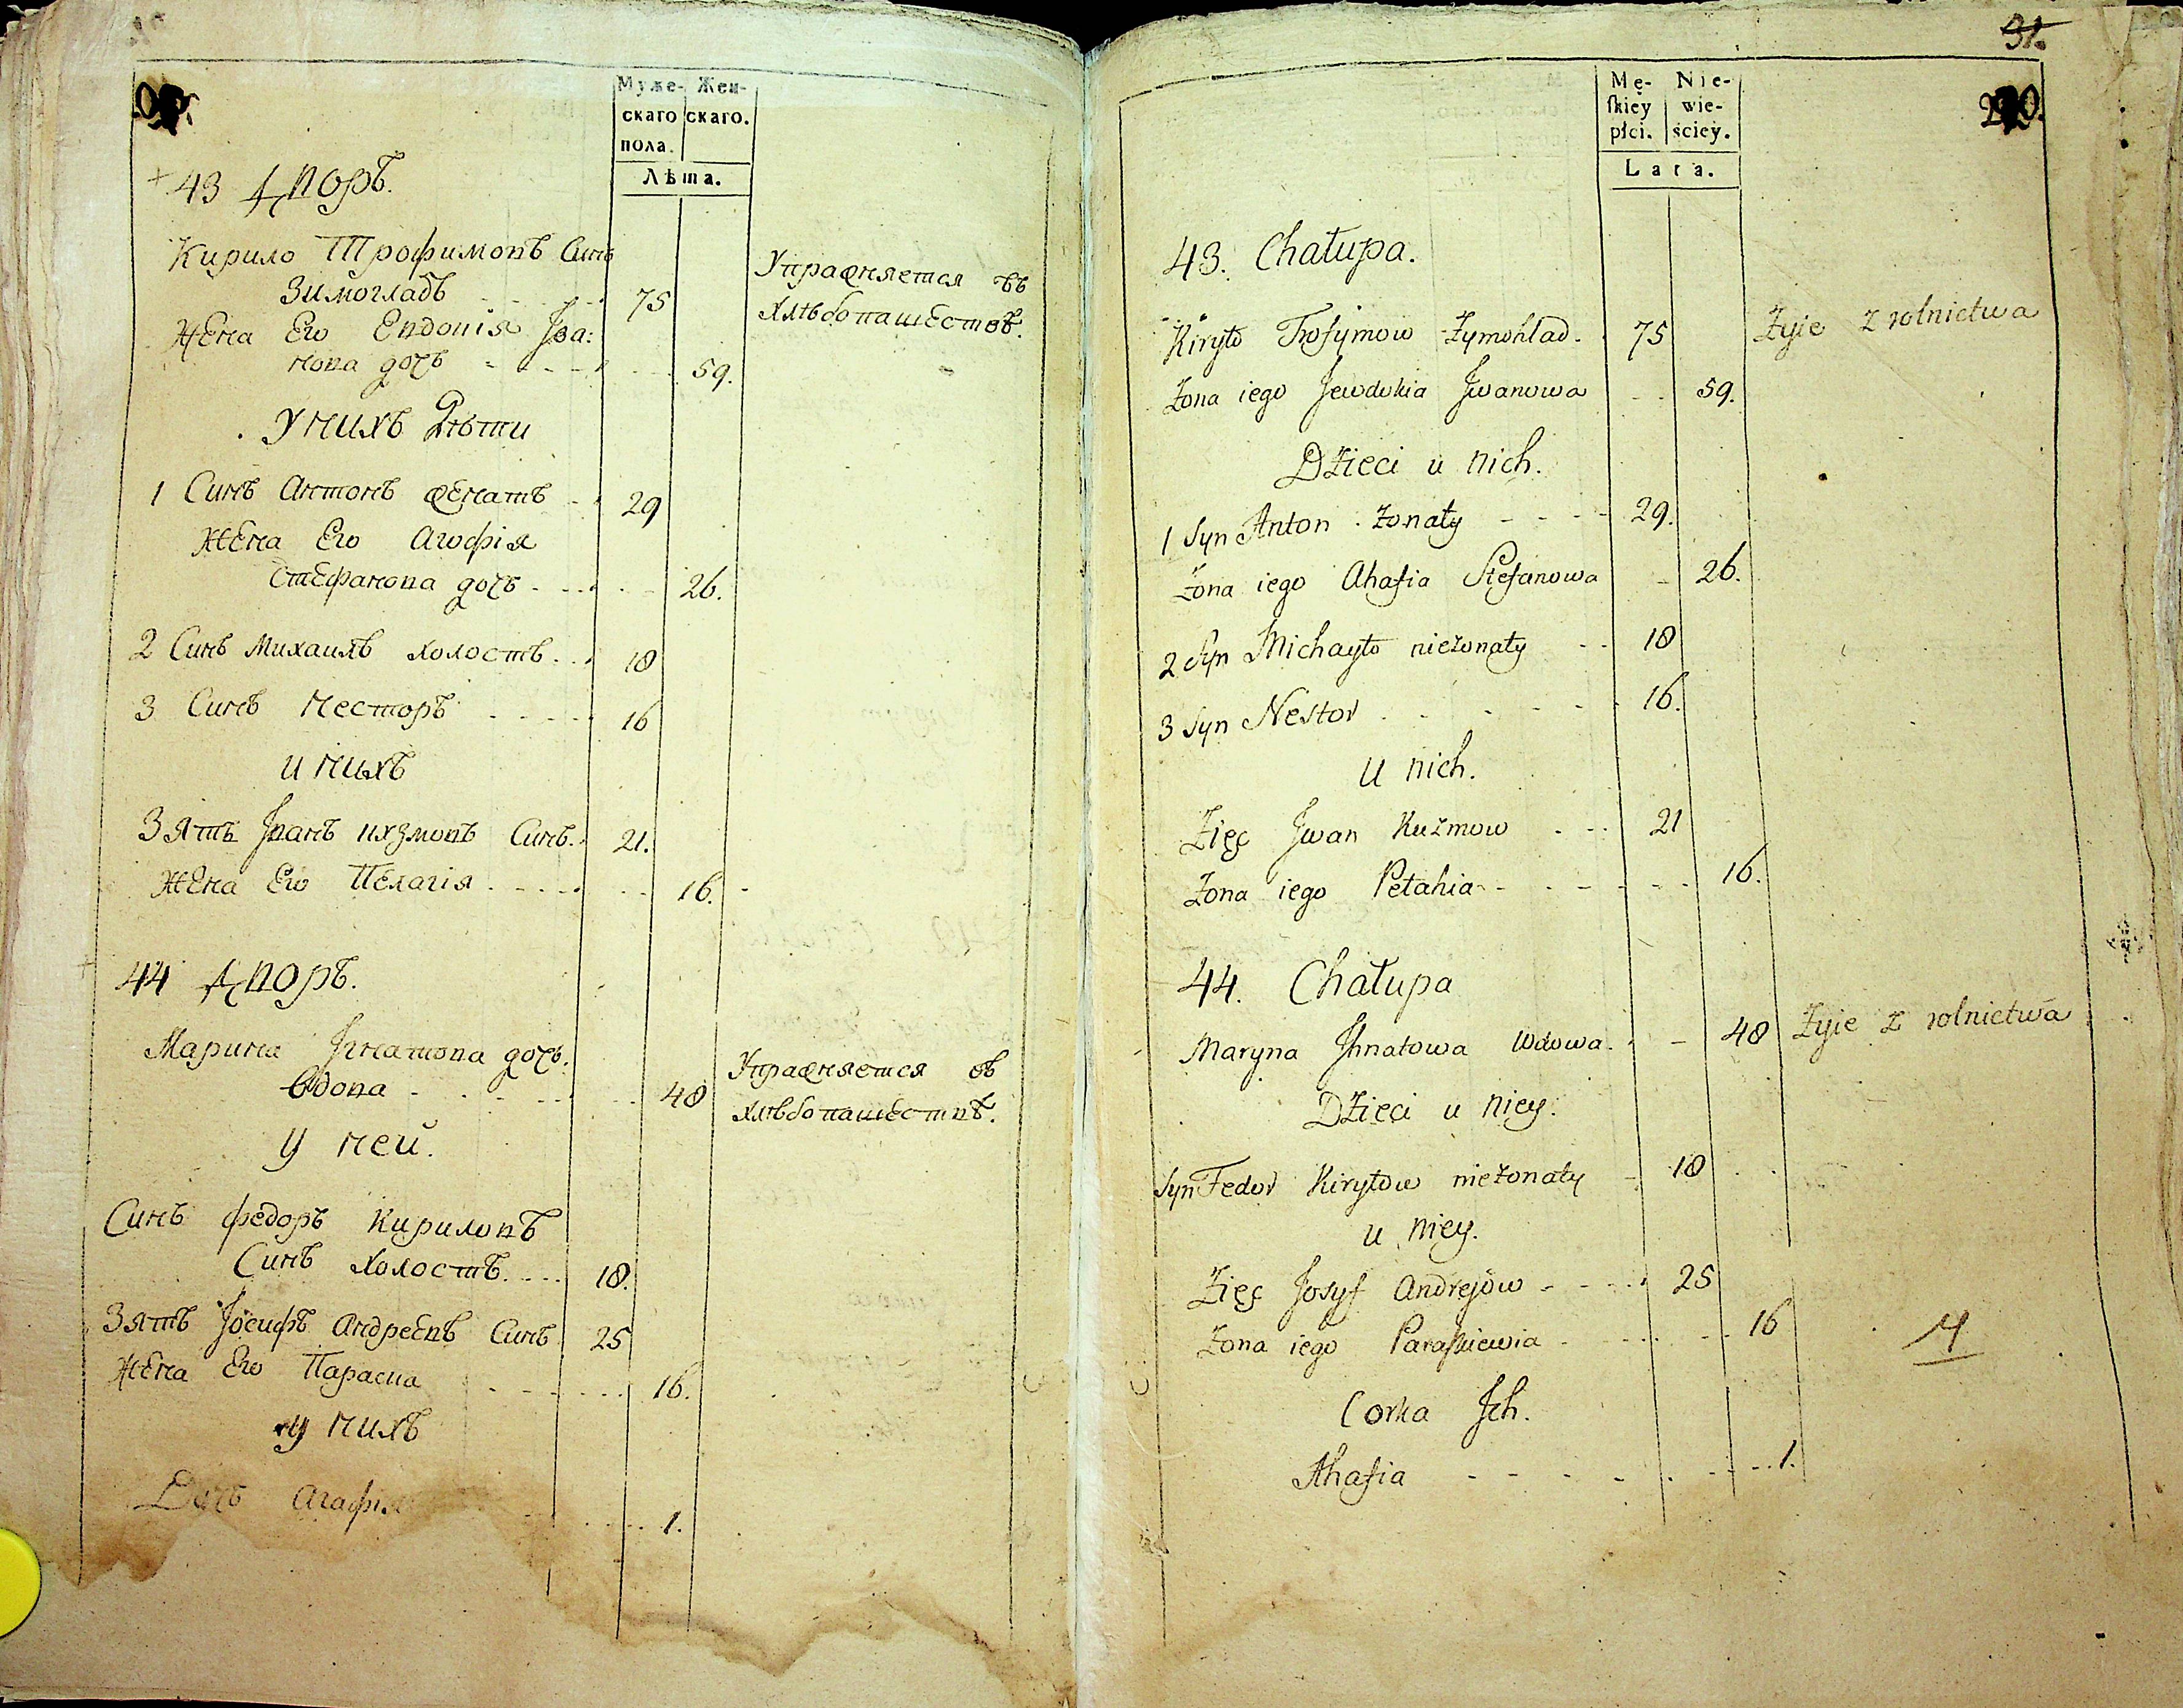 Муже- Жен-
скаго скаго.
пола.
Лѣта.
+ 43 Дворъ.
Кирило Трофимовъ Синъ
Зимогладъ 75
Упражняется въ
хлѣбопашествѣ.
Жена Его Евдокія Іва:
нова дочь 59.
У нихъ Дѣти
1 Синъ Антонъ женатъ 29
Жена Его Агофія
Стефанова дочь 26.
2 Синъ Михаилъ холостъ 18
3 Синъ Несторъ 16
и нихъ
Зять Іванъ Кузмовъ Синъ. 21.
Жена Его Пелагія 16.
44 Дворъ.
Марина Ігнатова дочь.
Вдова 48
Упражняется въ
хлѣбопашествѣ.
у ней.
Синъ Федоръ Кириловъ
Синъ холостъ. 18.
Зять Іосифъ Андреевъ Синъ 25
Жена Его Параска 16.
у нихъ
Дочь Агафія 1.
31.
Mę- Nie-
skiey wie-
płci. ściey.
Lata.
43. Chałupa.
Kiryło Trofymow Zymohlad. 75 Żyie z rolnictwa
Żona iego Jewdokia Jwanowa 59.
Dzieci u nich.
1 Syn Anton żonaty 29.
Żona iego Ahafia Stefanowa 26.
2 Syn Michayło nieżonaty 18
3 Syn Nestor 16.
u nich.
Zięć Jwan Kuzmow 21
Żona iego Pełahia 16.
44. Chałupa
Maryna Jhnatowa Wdowa. 48 Żyie z rolnictwa
Dzieci u niey.
Syn Fedor Kiryłow nieżonaty 18
u niey.
Zięć Josyf Andrejow 25
Żona iego Paraskiewia 16
Corka Jch.
Ahafia 1.